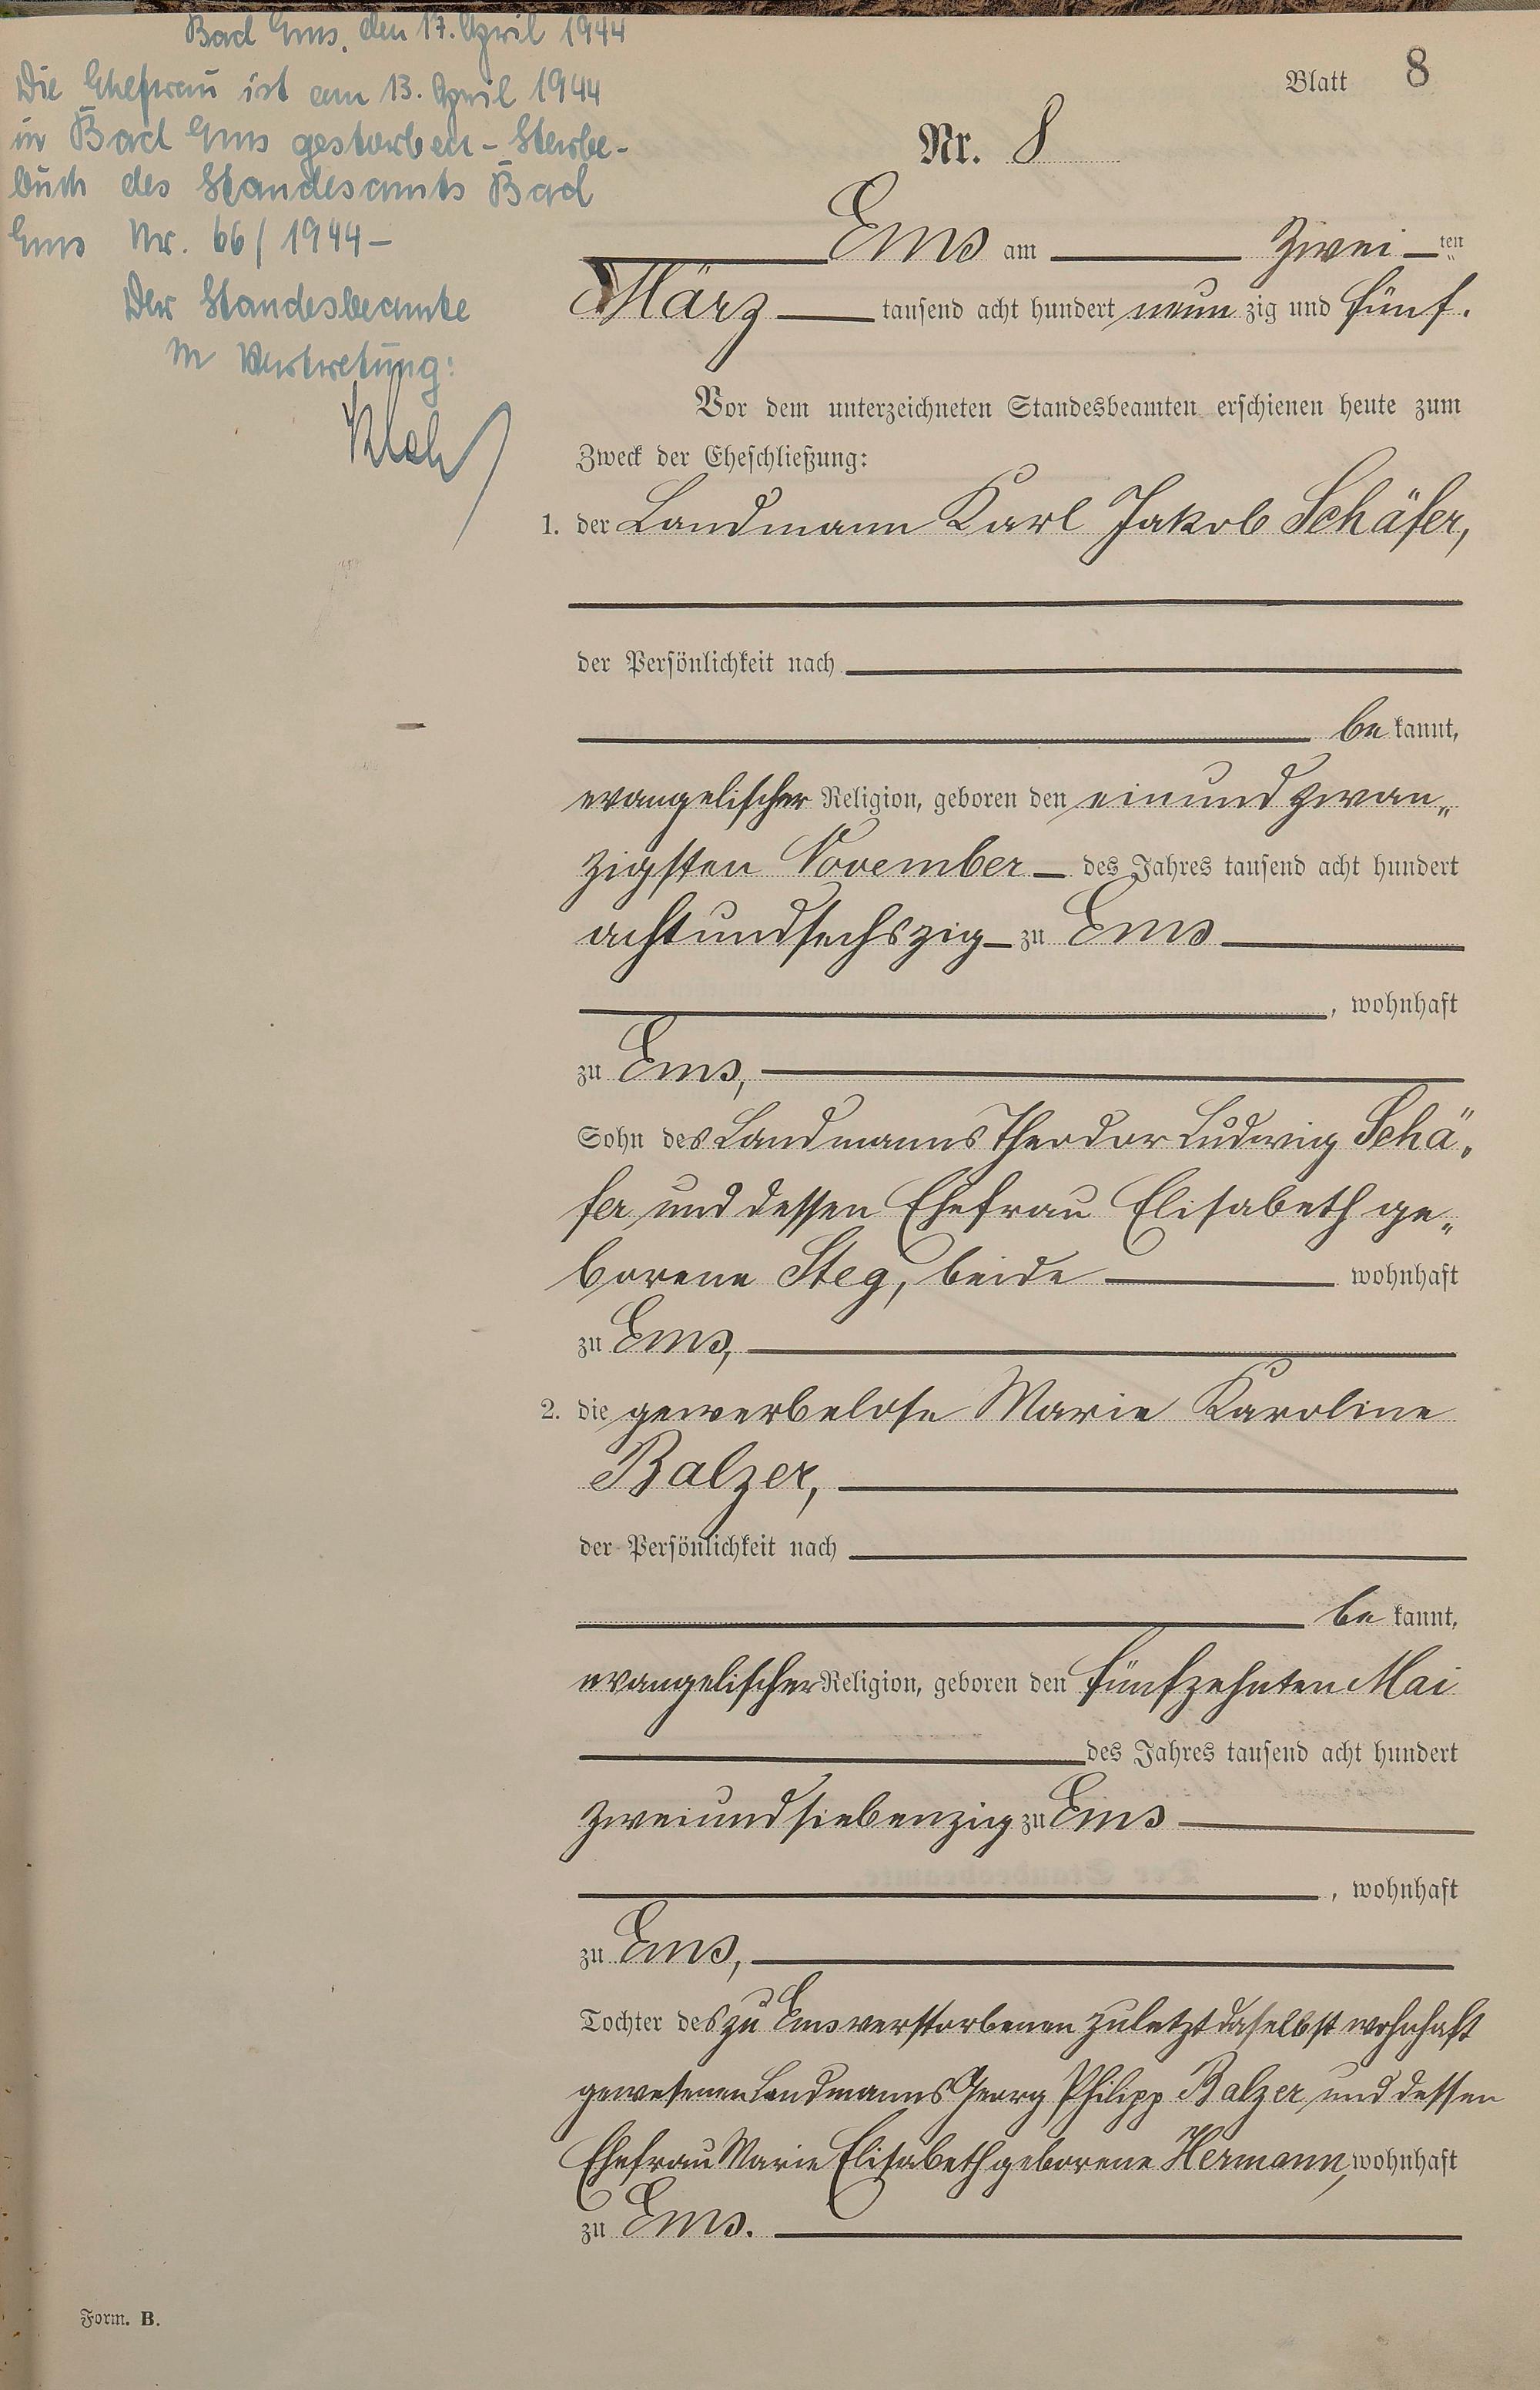 Bad Ems, den 17. April 1944
Die Ehefrau ist am 13. April 1944
in Bad Ems gestorben - Sterbe-
buch des Standesamts Bad
Ems Nr. 66/1944 -
Der Standesbeamte
In Vertretung:
Blatt 8
Nr. 8
Ems am Zwei ten
März tausend acht hundert neun zig und fünf.
Vor dem unterzeichneten Standesbeamten erschienen heute zum
Zweck der Eheschließung:
1. der Landmann Karl Jakob Schäfer,
der Persönlichkeit nach
be kannt,
evangelischer Religion, geboren den einund zwan„
zigsten November des Jahres tausend acht hundert
achtundsechszig zu Ems
, wohnhaft
zu Ems,
Sohn des Landmanns Theodor Ludwig Schä„
fer und dessen Ehefrau Elisabeth ge„
borene Steg, beide wohnhaft
zu Ems,
2. die gewerbelose Marie Karoline
Balzer,
der Persönlichkeit nach
be kannt,
evangelischer Religion, geboren den fünfzehnten Mai
des Jahres tausend acht hundert
zweiundsiebenzig zu Ems
, wohnhaft
zu Ems,
Tochter des zu Ems verstorbenen zuletzt daselbst wohnhaft
gewesenen Landmanns Georg Philipp Balzer und dessen
Ehefrau Marie Elisabeth geborene Hermann, wohnhaft
zu Ems.
Form. B.